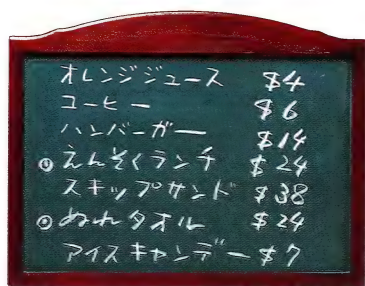 オレンジジュース $4
コーヒー $6
ハンバーガー $14
◎えんそくランチ $24
スキップサンド $38
◎ぬれタオル $24
アイスキャンデー $7